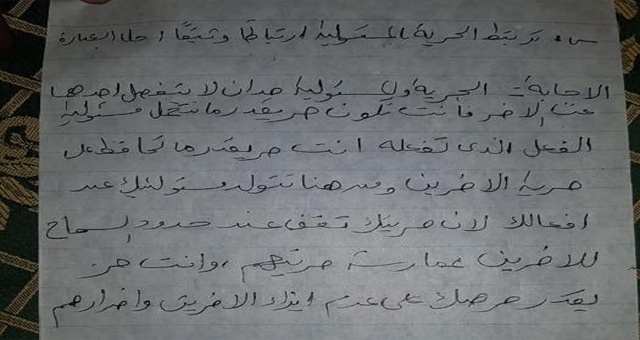 س٥ ترتبط الحرية بالمسئولية ارتباطا وثيقا احلل العبارة
الاجابة: الحرية والمسئولية حدان لا ينفصل احدهما
عن الاخر فانت تكون حر بقدر ما تتحمل مسئولية
الفعل الذى تفعله انت حر بقدر ما تحافظ على
حرية الاخرين ومن هنا تتولد مسئوليتك عند
افعالك لان حريتك تقف عند حدود السماح
للاخرين بممارسة حريتهم ، وانت حر
بقدر حرصك على عدم ايذاء الاخرين واضرارهم